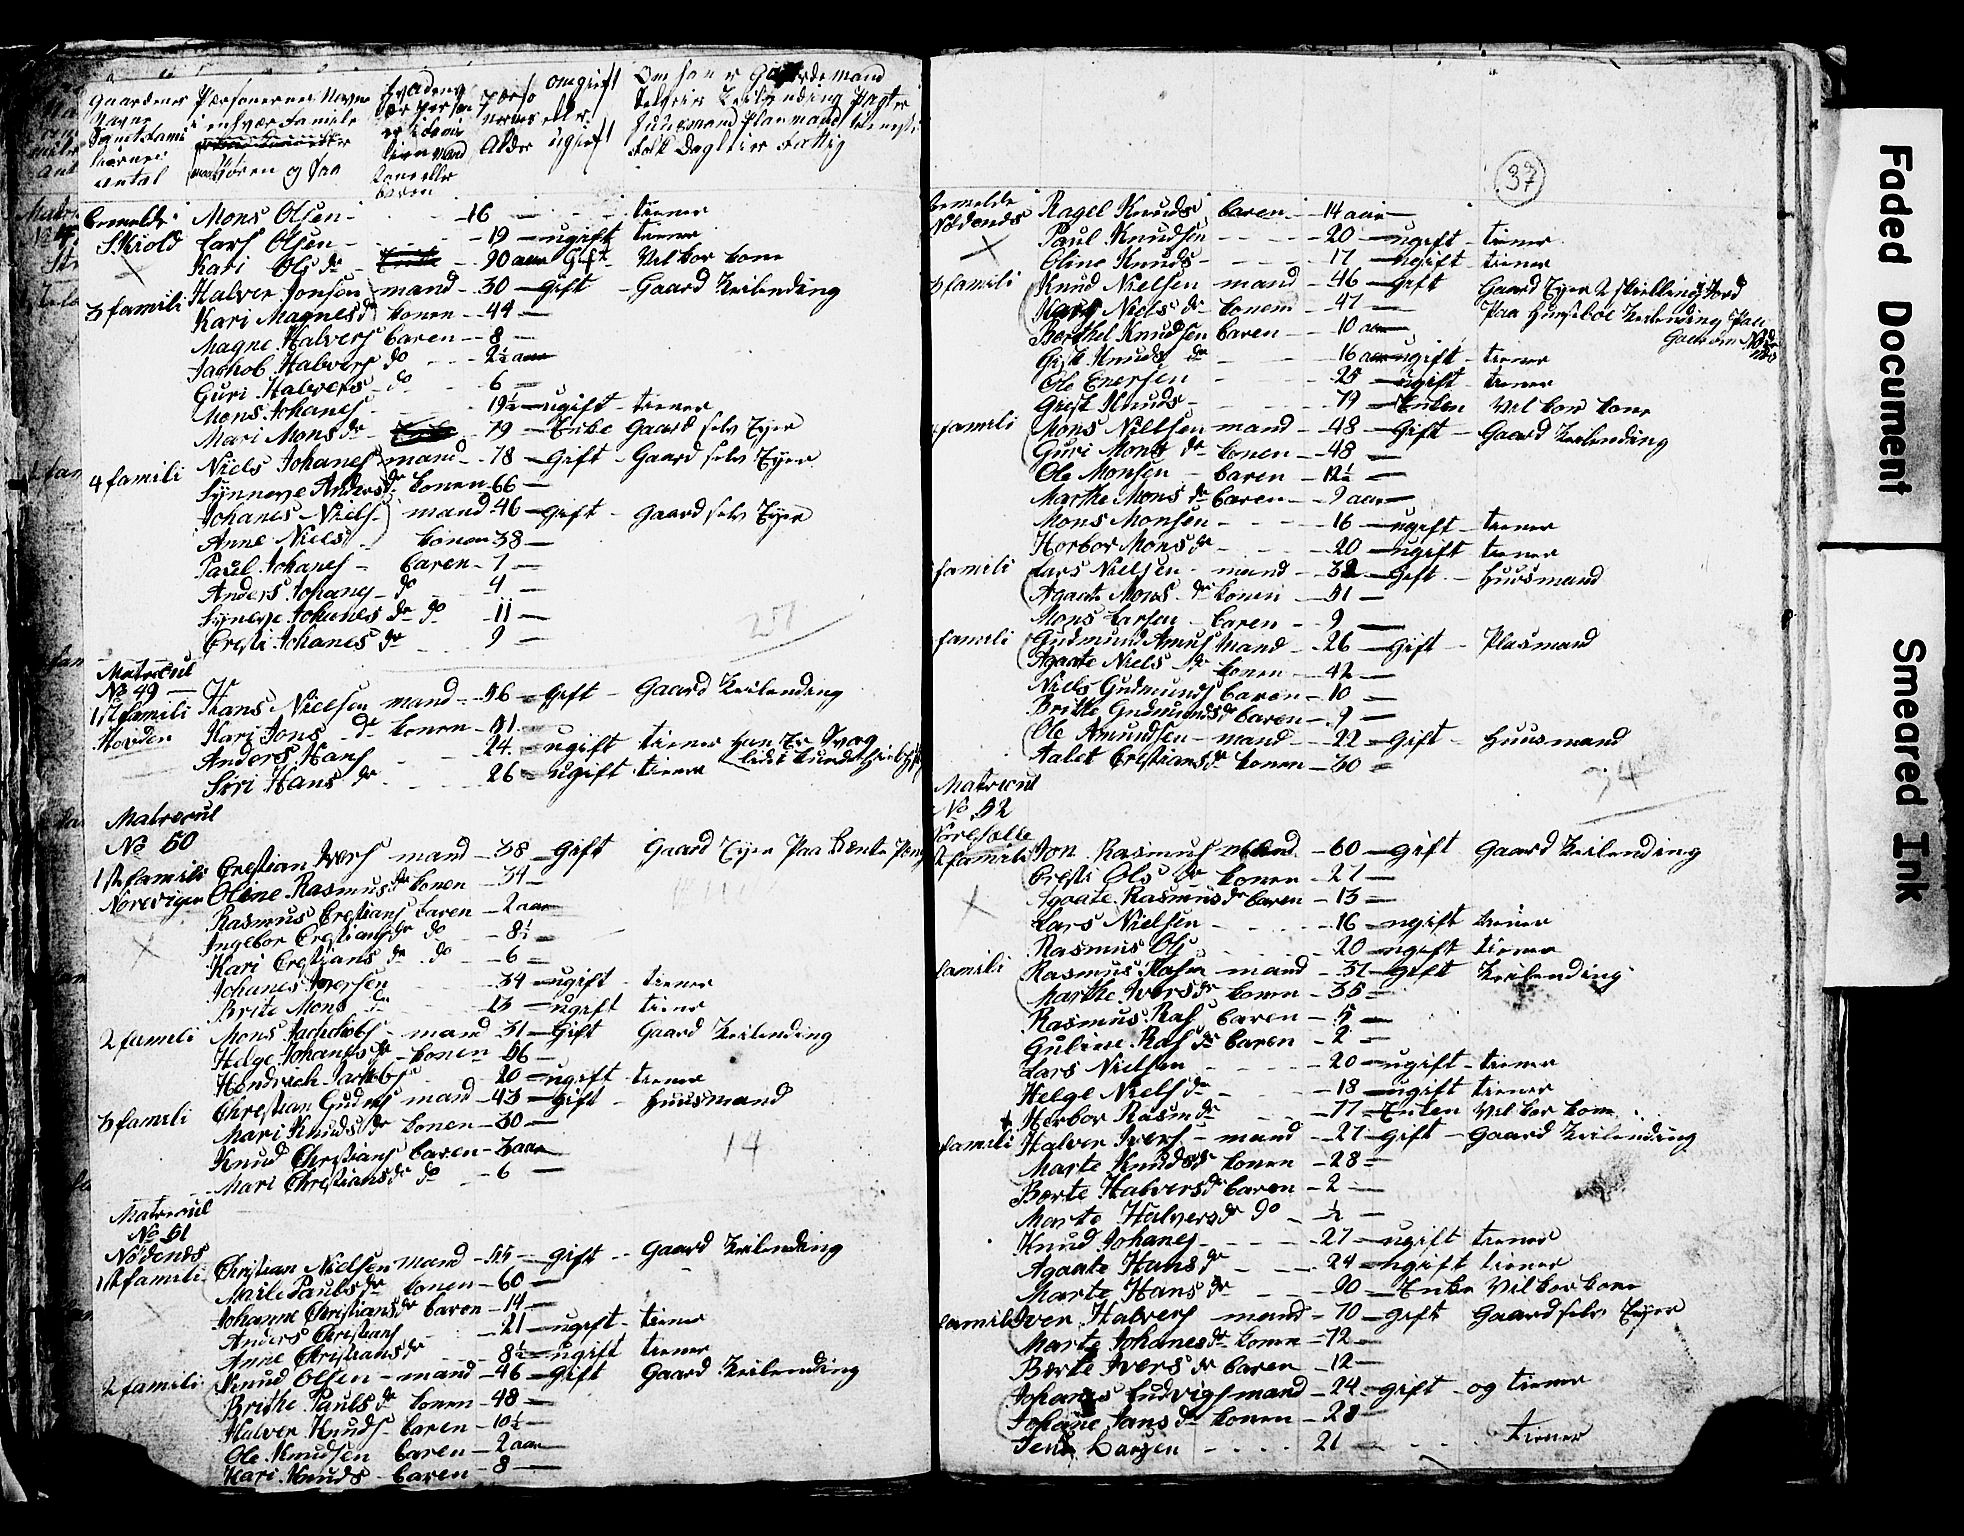 Gaardenes Navne
Personernes Navne i enhvær Famelie
Alder
ugift
bemelde Skiold
Mons Olsen - 16 - tiener
Lars Olsen - 19 - ugift tiener
Kari Ols dr - 90 aar Gift - Vilkor kone
3 famili Halver Jonsen mand - 30 - gift - Gaard Leilending
Kari Magnes dr konen - 44 -
Magne Halvers baren - 8 -
Jachob Halvers do - 2½ aar
Guri Halvers - do - 6 -
Mons Johanes - 19½ - ugift - tiener
Mari Mons dr - 79 - Enke Gaard selv Eyer
4 famili Niels Johanes mand - 78 - gift - Gaard selv Eyer
Synneve Anders dr konen 66 -
Johanes Niels - mand 46 - gift - gaard selv Eyer
Anne Niels - konen 38 -
Paul Johanes - baren - 7 -
Anders Johanes - do - 4 -
Syneve Johanes dr do - 11 -
Cresti Johanes dr - 9 -
Matrecul
No 49
1st famili Hans Nielsen mand - 56 - gift - Gaard Leilending
Hovden Kari Jons dr konen - 51 -
Anders Hans - 24 - ugift tiener
Siri Hans dr - 26 - ugift - tiener
Matrecul
No 50
1st famili Crestian Ivers mand - 38 - gift Gaard Eyer Paa
Norevigen Oline Rasmus dr konen - 34 -
Rasmus Crestians baren - 2 aar
Ingebor Crestians dr do - 8½ -
Kari Crestians dr do - 6 -
Johanes Iversen - 34 - ugift - tiener
Brite Mons dr - 13 - ugift tiener
2 famili Mons Jachobs - mand 51 - Gift Gaard Leilending
Helge Johanes dr - konen 56 -
Hendrich Jackobs - 20 - ugift - tiener
3 famili Christian Gudm mand - 43 - gift - Huusmand
Mari Knuds dr konen - 30 -
Knud Christians baren - 3 aar
Mari Christians dr do - 6 -
14
Matrecul
No 51
Nødenes
1st famili Christian Nielsen mand - 55 - gift - Gaard Leilending
Marte Pauls dr konen - 60 -
Johanne Christians dr baren - 14 -
Anders Christians - 21 - ugift - tiener
Anne Christians dr - 8½ - ugift tiener
2 famili Knud Olsen - mand - 46 - gift Gaard Leilending
Brithe Pauls dr konen - 48 -
Halver Knuds - baren - 10½ -
Ole Knudsen baren - 2 aar
Kari Knuds - baren - 8 -
37
bemelde Nødenes
Ragel Knuds baren - 14 aar -
Paul Knudsen - 20 - ugift - tiener
Oline Knuds - 17 - ugift - tiener
3 famili Knud Nielsen mand - 46 - gift Gaard Eyer 2 skilling Jord
Niels dr konen - 47 - Paa Leilending Paa
Berthel Knudsen baren - 10 aar -
Knuds dr - 16 aar ugift - tiener
Ole Enersen - 25 - ugift - tiener
Knuds - 79 - Enken Vilkor kone
famili Mons Nielsen mand - 48 - Gift - Gaard Leilending
Guri Mons dr konen - 48 -
Ole Monsen - baren - 12½ -
Marthe Mons dr baren - 9 aar
Mons Monsen - 16 - ugift - tiener
Horbor Mons dr - 20 - ugift tiener
famili Lars Nielsen - mand - 32 - gift - Huusmand
Agaate Mons dr konen - 51 -
Mons Larsen - baren - 9 -
famili Gudmund mand - 26 - gift - Plasmand
Agaate Niels dr konen - 42 -
Niels Gudmunds baren - 10 -
Brithe Gudmunds dr baren - 9 -
Ole Amundsen - mand - 22 - gift - Huusmand
Aalet Crestians dr konen - 30 -
34
Matrecul
No 52
famili Jon Rasmus mand - 60 - gift Gaard Leilending
Cresti Ols dr konen - 27 -
Agaate Rasmus dr baren - 13 -
Lars Nielsen - 16 - ugift tiener
Rasmus Ols - 20 - ugift tiener
famili Rasmus Rasm - mand - 37 - gift Leilending
Marthe Ivers dr konen - 35 -
Rasmus Ras baren - 5 -
Guline Ras dr baren - 2 -
Lars Nielsen - 20 - ugift - tiener
Helge Niels dr - 18 - ugift tiener
Horbor Rasm dr - 77 - Enken Vilkor kone
famili Halver Ivers - mand - 27 - gift - Gaard Leilending
Marte Knuds dr konen - 28 -
Berte Halvers dr baren - 2 -
Marte Halvers dr do - ½ -
Knud Johanes - 27 - ugift tiener
Agaate Hans dr - 24 - ugift tiener
Marte Hans dr - 90 - Enke Vilkor kone
famili Iver Halvers mand - 70 - gift Gaard selv Eyer
Marte Johanes dr konen - 72 -
Berte Ivers dr baren - 12 -
Johanes Ludvigs mand - 24 - gift - og tiener
Johane Jans dr konen - 28 -
Jens Larsen - 21 - tiener
Faded Document
Smeared Ink